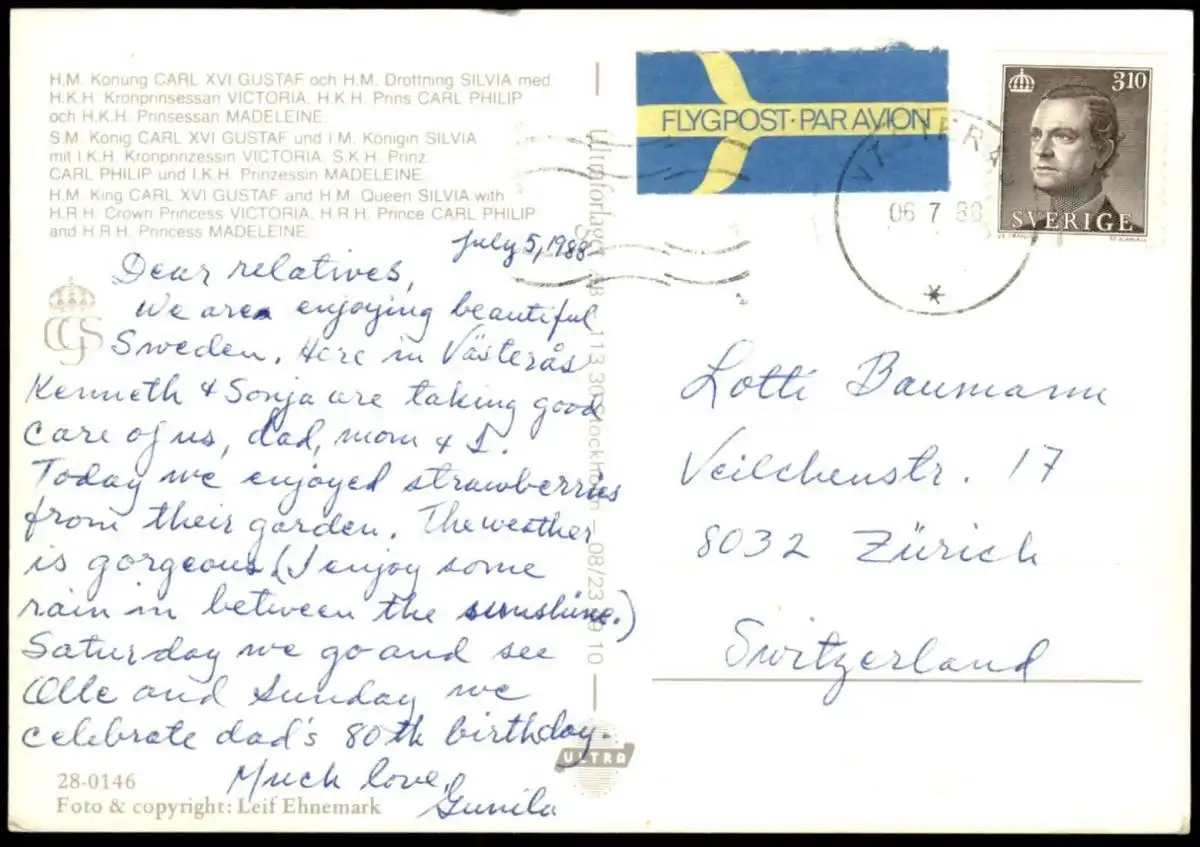 H.M. Konung CARL XVI GUSTAF och H.M. Drottning SILVIA med
H.K.H. Kronprinsessan VICTORIA, H.K.H. Prins CARL PHILIP
och H.K.H. Prinsessan MADELEINE.
S.M. König CARL XVI GUSTAF und I.M. Königin SILVIA
mit I.K.H. Kronprinzessin VICTORIA, S.K.H. Prinz
CARL PHILIP und I.K.H. Prinzessin MADELEINE.
H.M. King CARL XVI GUSTAF and H.M. Queen SILVIA with
H.R.H. Crown Princess VICTORIA, H.R.H. Prince CARL PHILIP
and H.R.H. Princess MADELEINE.
July 5, 1988
Dear relatives,
We are enjoying beautiful
Sweden. Here in Västerås
Kenneth & Sonja are taking good
care of us, dad, mom & I.
Today we enjoyed strawberries
from their garden. The weather
is gorgeous (I enjoy some
rain in between the sunshine.)
Saturday we go and see
Olle and Sunday we
celebrate dad's 80th birthday.
Much love,
Gunila
28-0146
Foto & copyright: Leif Ehnemark
Ultraförlaget AB 113 30 Stockholm – 08/23 10
ULTRA
FLYGPOST·PAR AVION
3.10
SVERIGE
06 7 88
Lotti Baumann
Veilchenstr. 17
8032 Zürich
Switzerland